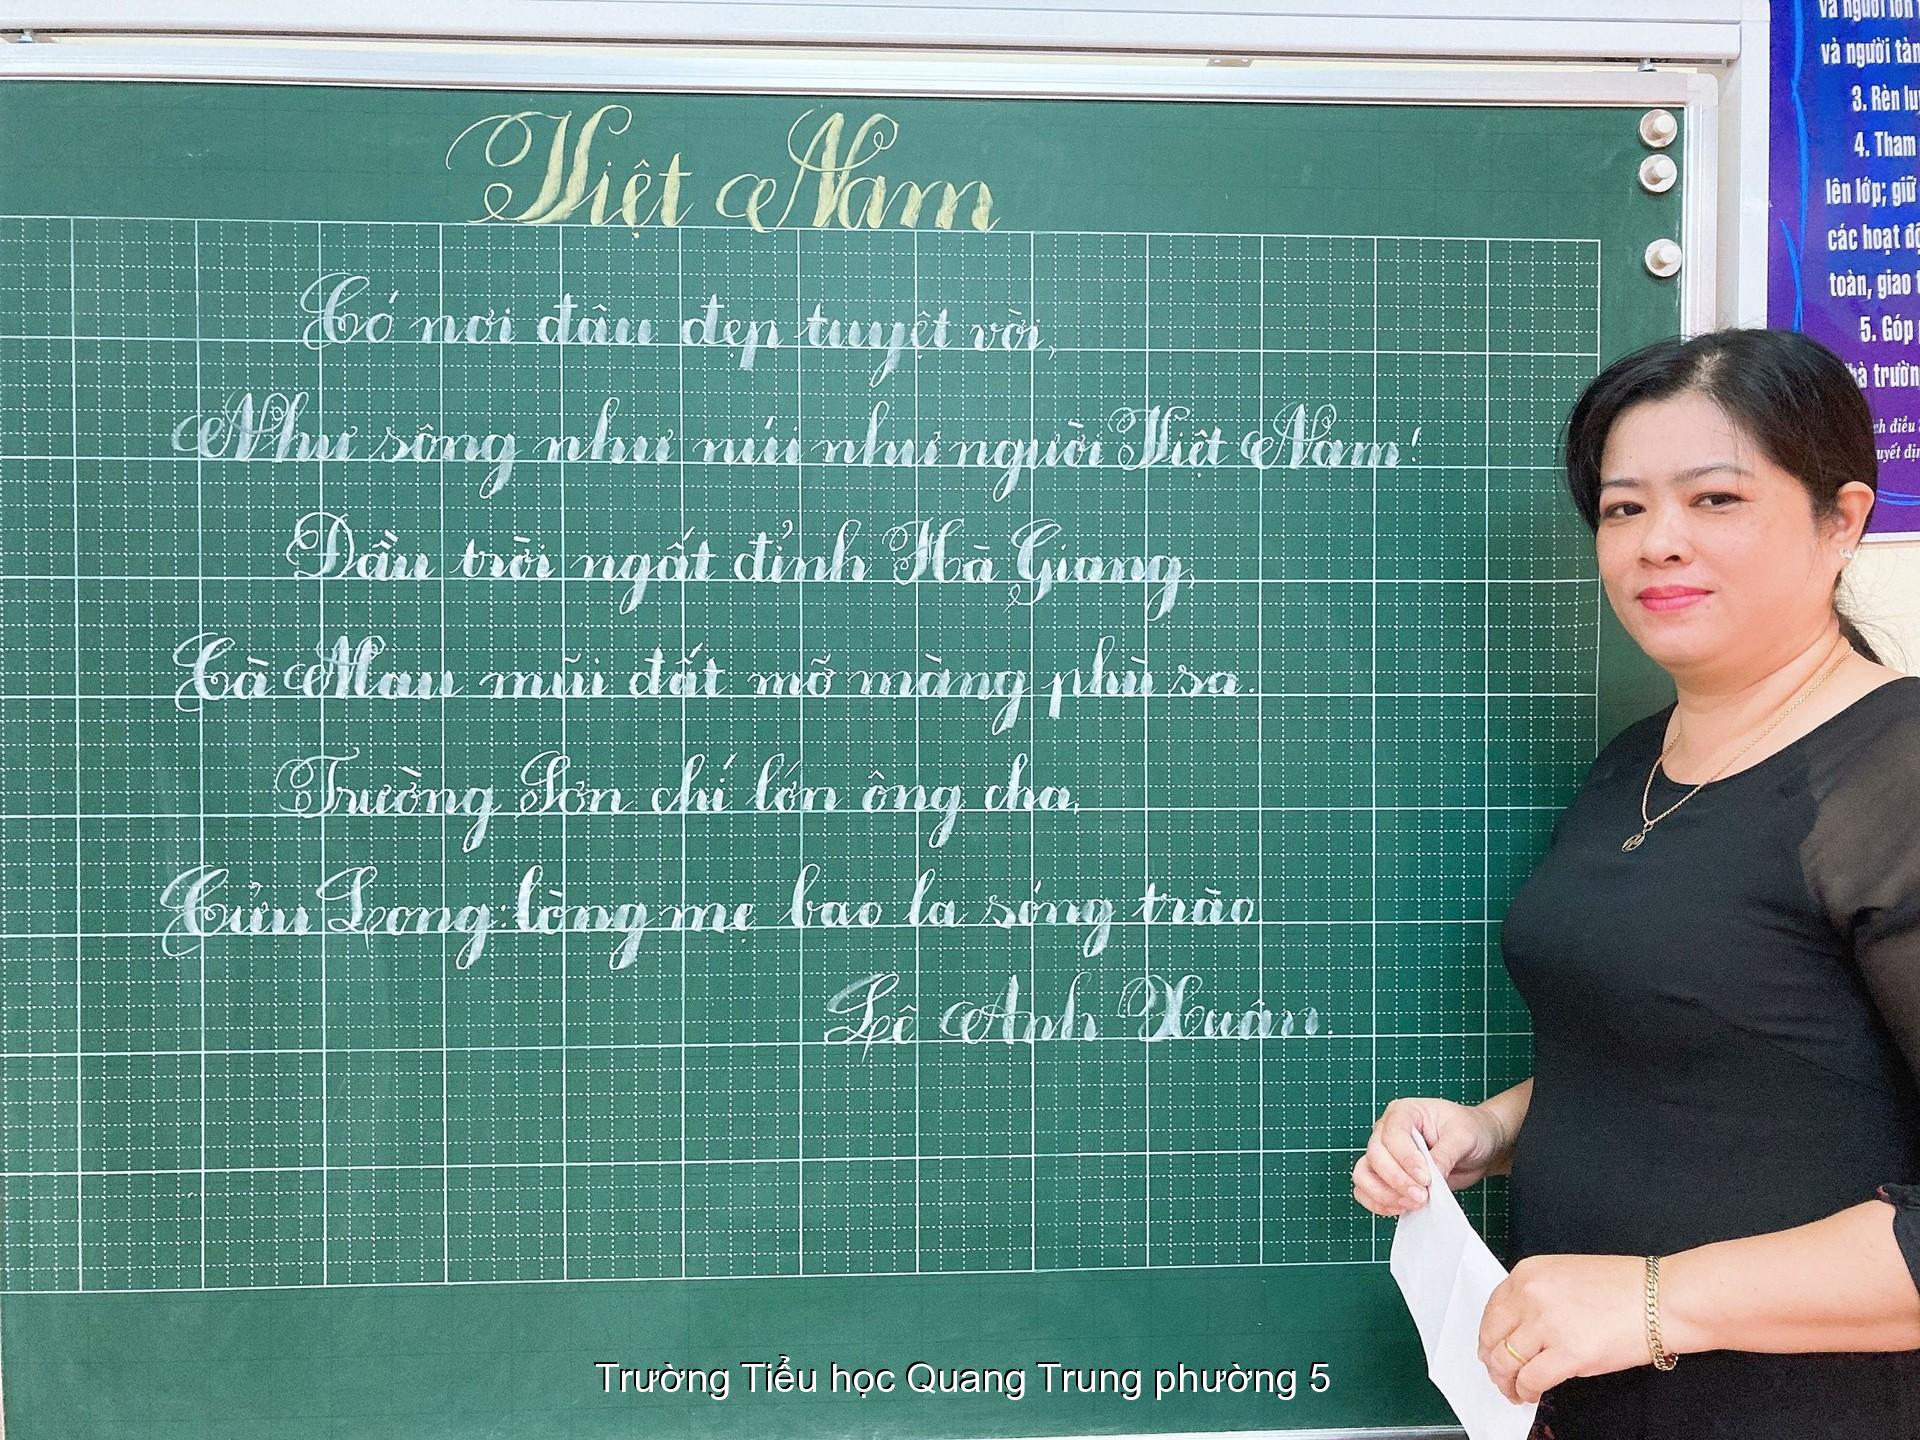 Việt Nam
Có nơi đâu đẹp tuyệt vời,
Như sông như núi như người Việt Nam!
Đầu trời ngất đỉnh Hà Giang,
Cà Mau mũi đất mỡ màng phù sa.
Trường Sơn chí lớn ông cha,
Cửu Long: lòng mẹ bao la sóng trào
Lê Anh Xuân.
và người tàn
3. Rèn lu
4. Tham
lên lớp; giữ
các hoạt độ
toàn, giao t
5. Góp p
hà trườn
ch điều
uyết địn
Trường Tiểu học Quang Trung phường 5